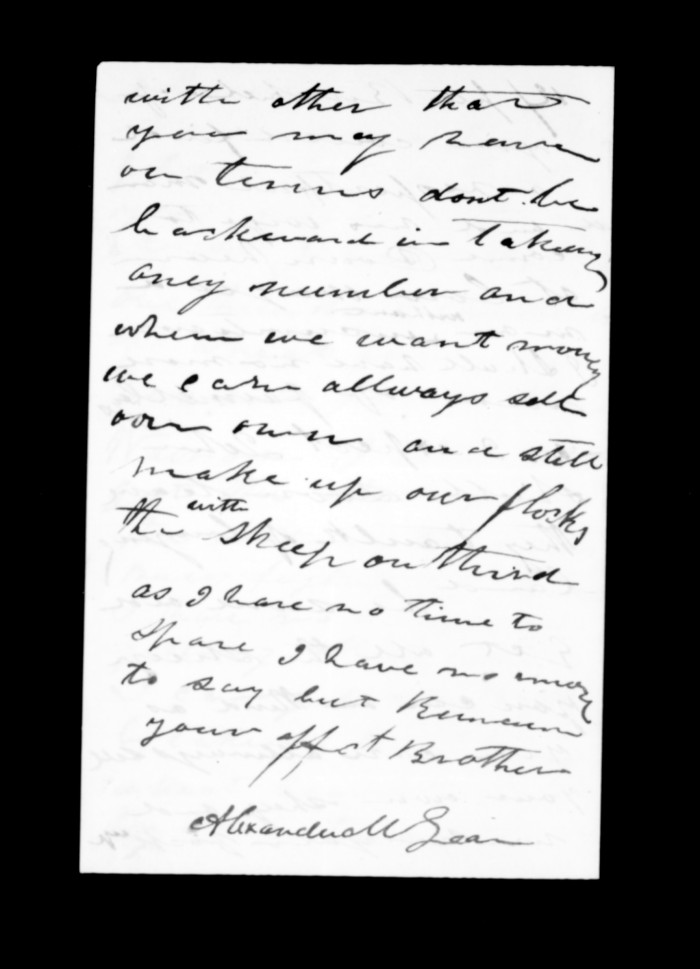 with other that
you may have
on terms dont be
backward in takeing
aney number and
when we want money
we can allways sell
our own and still
make up our flocks
with
the sheep on third
as I have no time to
spare I have no more
to say but Remain
your affct Brother
Alexander McLean